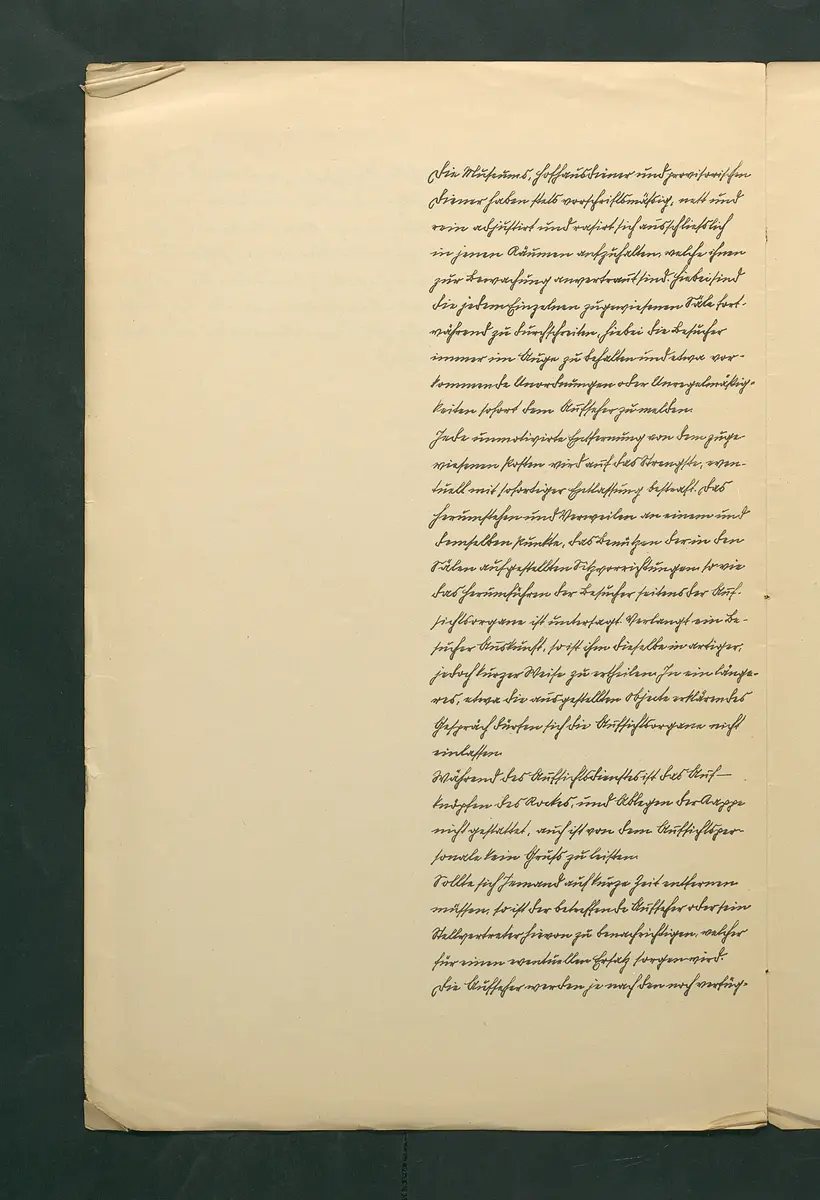 Die Museums, Hofhausdiener und provisorischen
Diener haben stets vorschriftsmäßig, nett und
rein adjustirt und rasirt sich ausschliesslich
in jenen Räumen aufzuhalten, welche ihnen
zur Bewachung anvertraut sind. Hiebei sind
die jedem Einzelnen zugewiesenen Säle fort-
während zu durchschreiten, hiebei die Besucher
immer im Auge zu behalten und etwa vor-
kommende Unordnungen oder Unregelmäßig-
keiten sofort dem Aufseher zu melden.
Jede unmotivirte Entfernung von dem zuge-
wiesenen Posten wird auf das Strengste, even-
tuell mit sofortiger Entlassung bestraft. Das
Herumstehen und Verweilen an einem und
demselben Punkte, das Benützen der in den
Sälen aufgestellten Sitzvorrichtungen so wie
das Herumführen der Besucher seitens der Auf-
sichtsorgane ist untersagt. Verlangt ein Be-
sucher Auskunft, so ist ihm dieselbe in artiger,
jedoch kurzer Weise zu ertheilen. In ein länge-
res, etwa die ausgestellten Objecte erklärendes
Gespräch dürfen sich die Aufsichtsorgane nicht
einlassen.
Während des Aufsichtsdienstes ist das Auf-
knöpfen des Rockes, und Ablegen der Kappe
nicht gestattet, auch ist von dem Aufsichtsper-
sonale kein Gruß zu leisten.
Sollte sich Jemand auf kurze Zeit entfernen
müssen, so ist der betreffende Aufseher oder sein
Stellvertreter hievon zu benachrichtigen, welcher
für einen eventuellen Ersatz sorgen wird.
Die Aufseher werden je nach den noch verfüg-